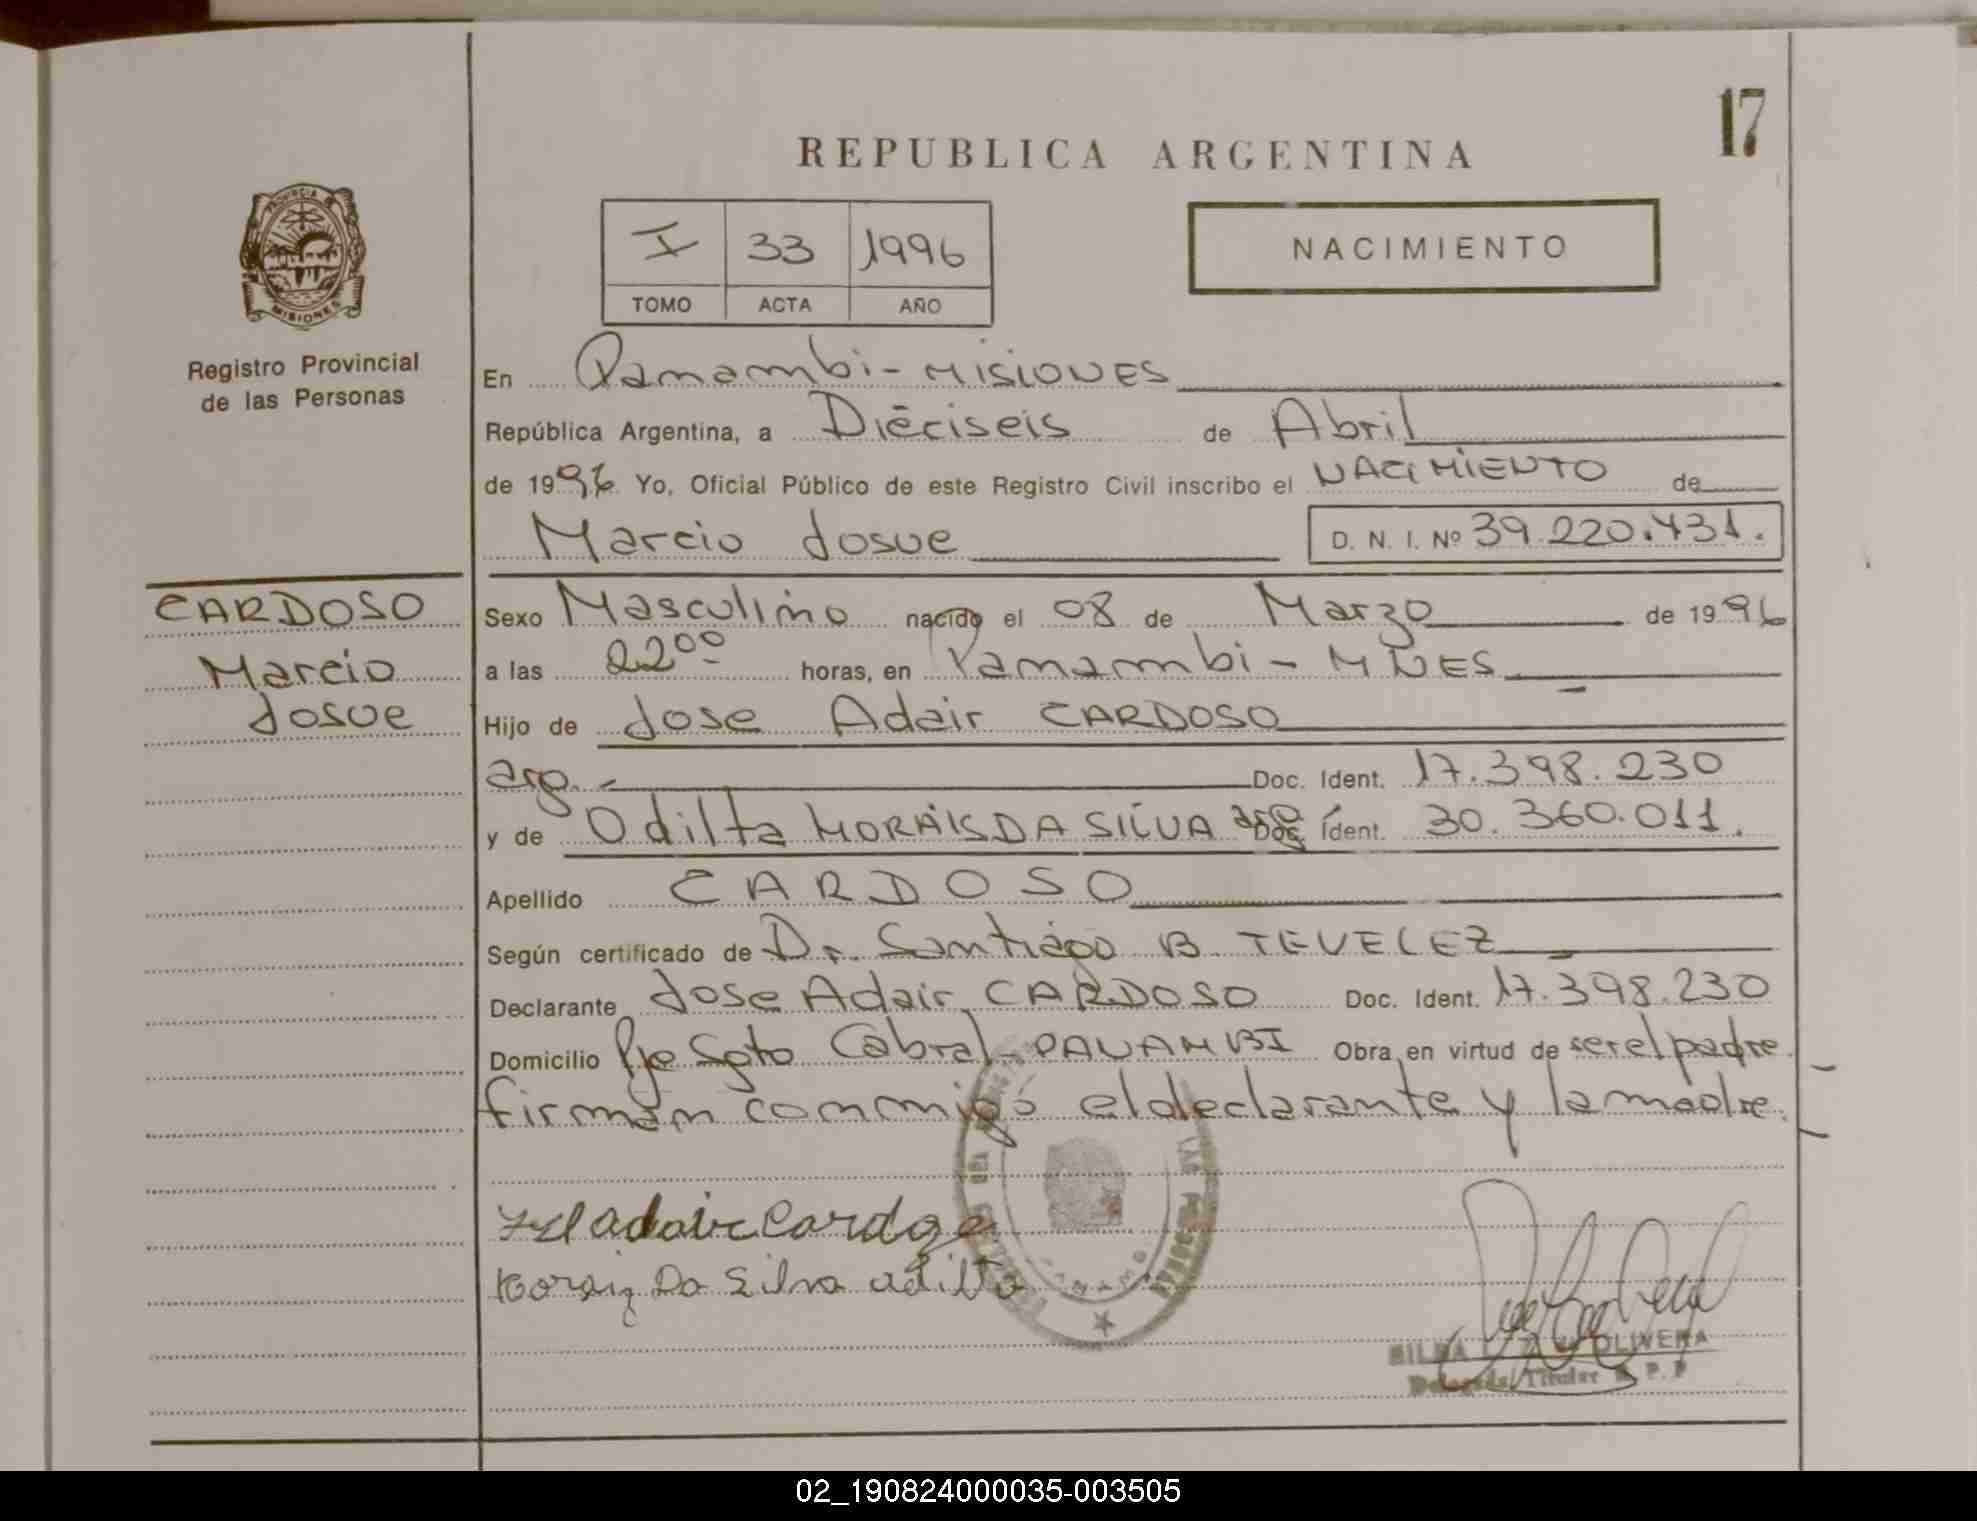 17
REPUBLICA ARGENTINA
PROVINCIA DE
MISIONES
Registro Provincial
de las Personas
I 33 1996
TOMO ACTA AÑO
NACIMIENTO
En Panambi - MISIONES
República Argentina, a Dieciseis de Abril
de 1996 Yo, Oficial Público de este Registro Civil inscribo el NACIMIENTO de
Marcio Josue D. N. I. Nº 39.220.431.
CARDOSO
Marcio
Josue
Sexo Masculino nacido el 08 de Marzo de 1996
a las 22⁰⁰ horas, en Panambi - MNES
Hijo de Jose Adair CARDOSO
arg. - Doc. Ident. 17.398.230
y de Odilta MORAIS DA SILVA arg Doc. Ident. 30.360.011.
Apellido CARDOSO
Según certificado de Dr. Santiago B. TEVELEZ
Declarante Jose Adair CARDOSO Doc. Ident. 17.398.230
Domicilio Pje Sgto Cabral - PANAMBI Obra en virtud de ser el padre
firman conmigo el declarante y la madre.
adair Cardozo
Moraiz Da Silva adilta
OLIVERA
Delegada Titular R. P. P
02_190824000035-003505